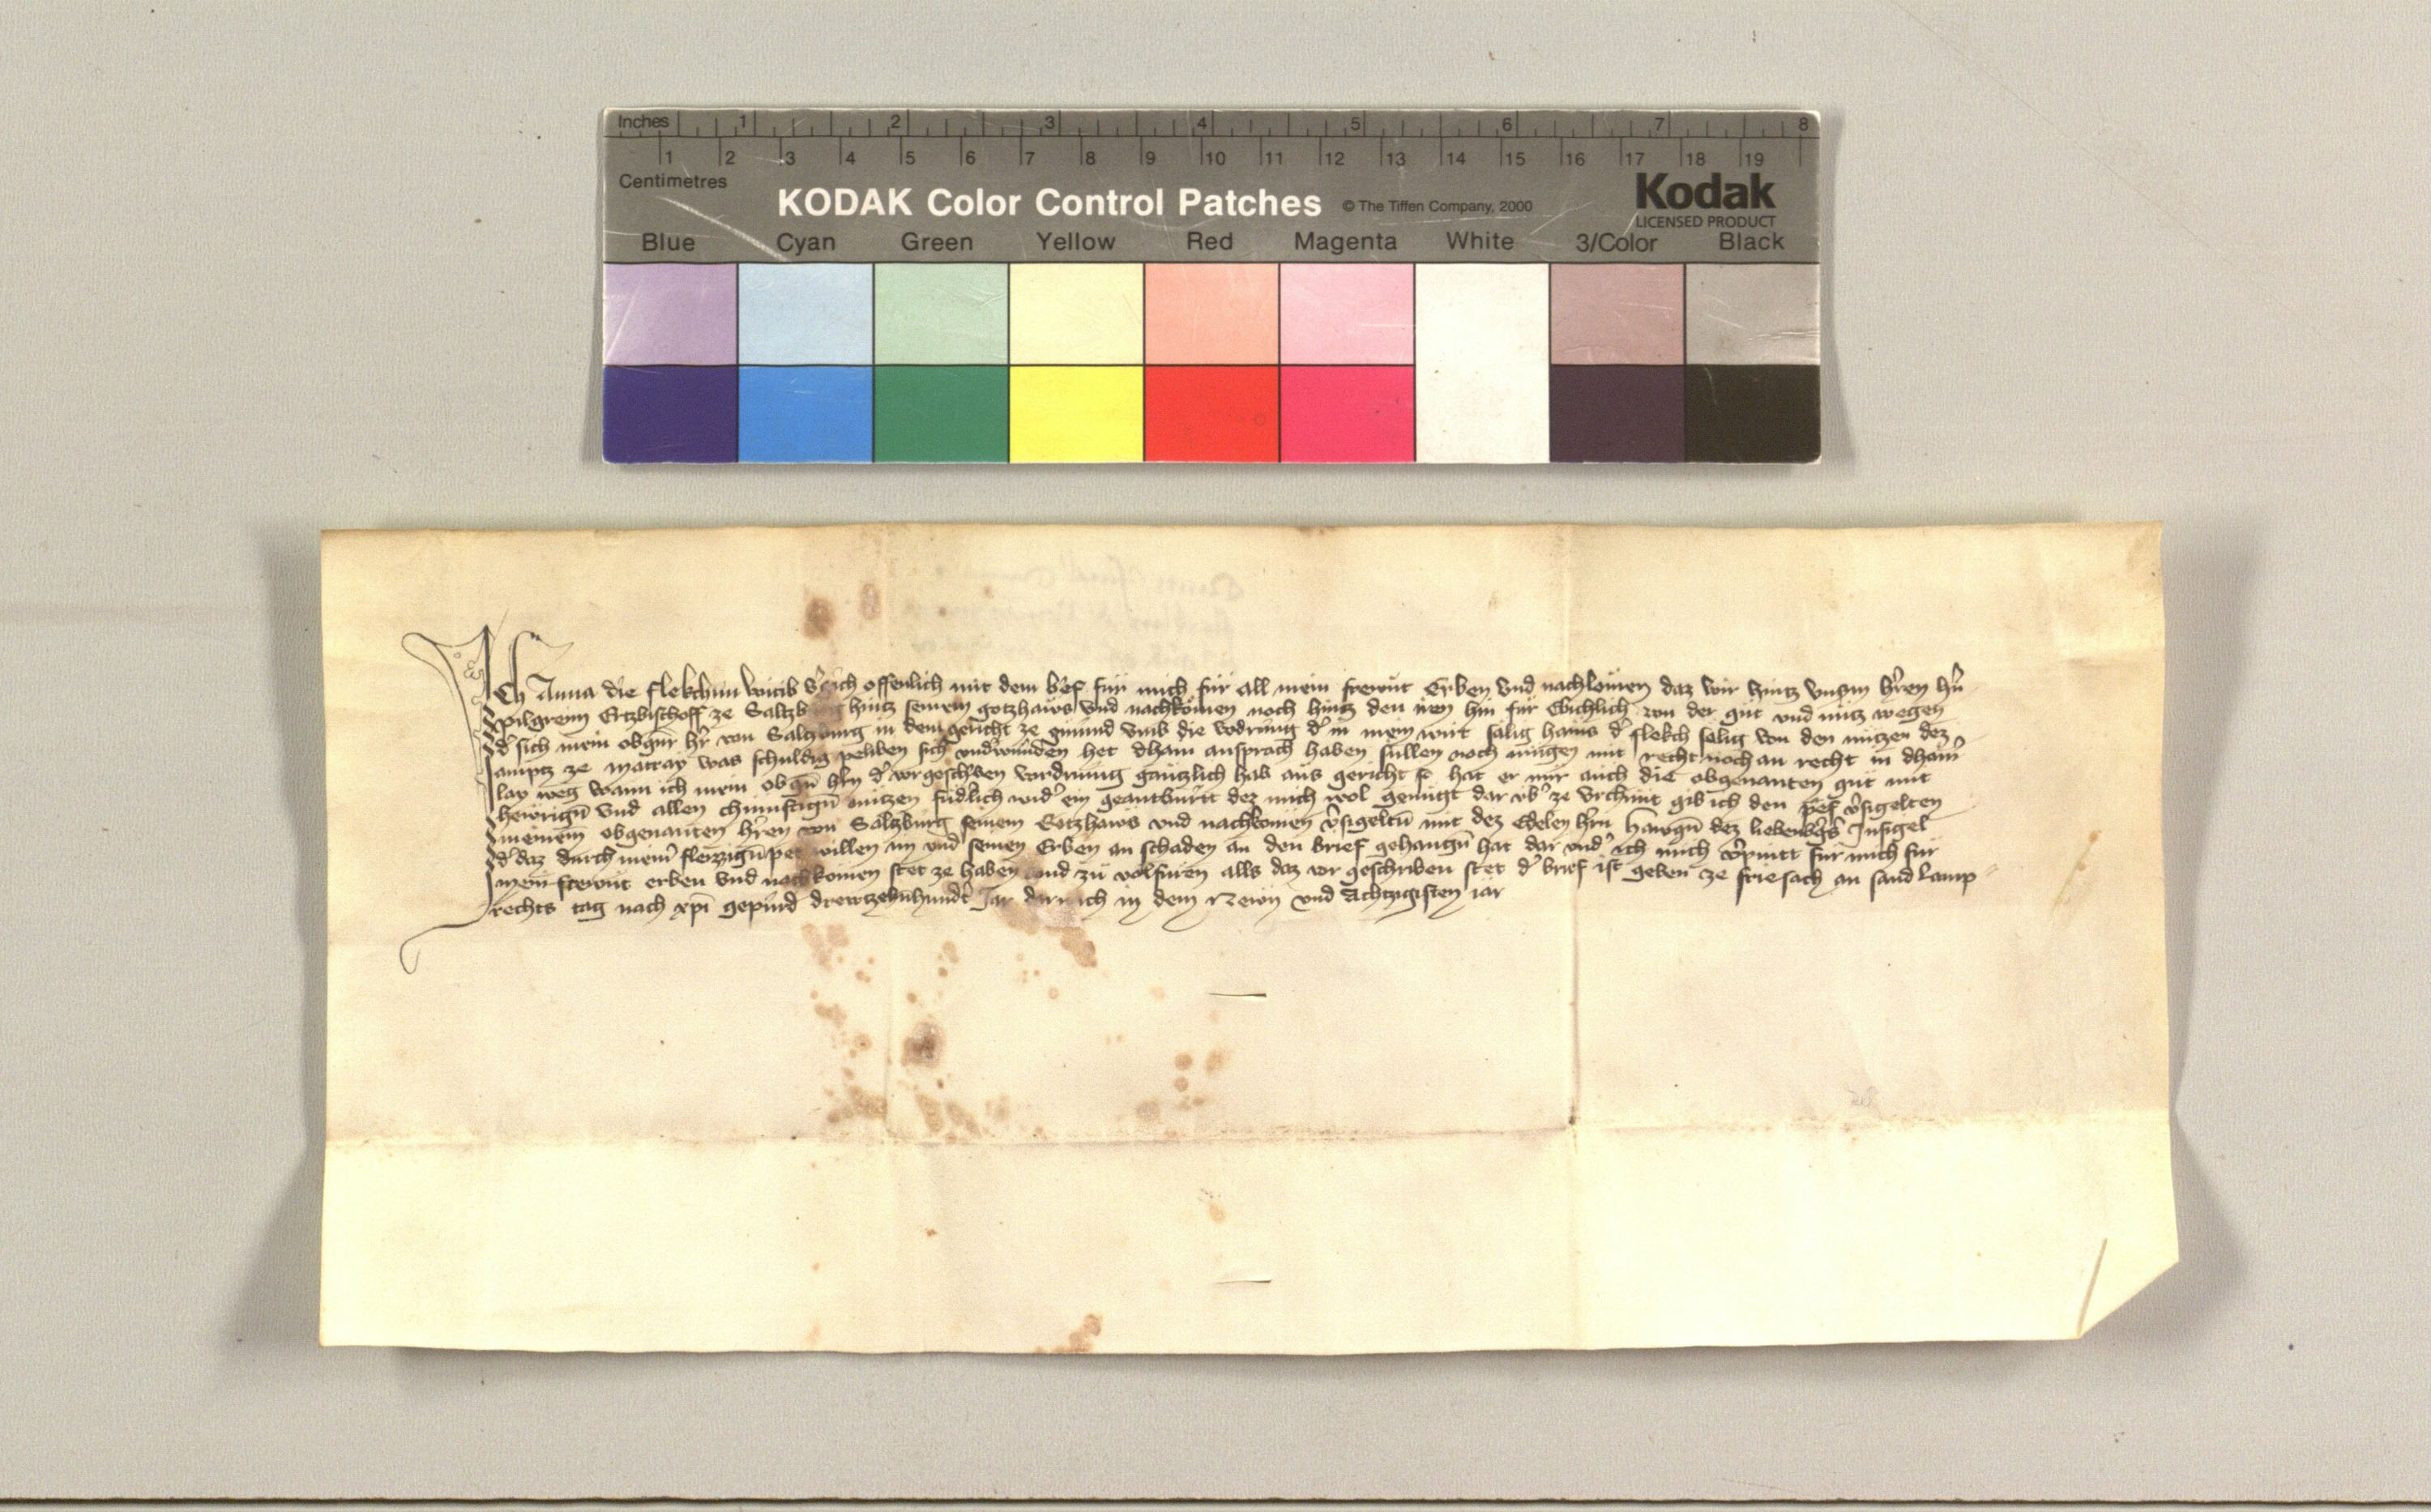 Inches 1 2 3 4 5 6 7 8
1 2 3 4 5 6 7 8 9 10 11 12 13 14 15 16 17 18 19
Centimetres
KODAK Color Control Patches © The Tiffen Company, 2000 Kodak
LICENSED PRODUCT
Blue Cyan Green Yellow Red Magenta White 3/Color Black
Ich Anna die flekchinn witib offenlich mit dem für mich für all mein frewnt Erben vnd nachkomen daz wir hintz vnsm hren hn
pilgreim Ertzbischoff ze Saltzburg hintz seinem gotzhaws vnd nachkomen noch hintz den iren hin für Ewichlich von der güt vnd nütz wegen
d sich mein obgnr hr von Saltzburg in dem gericht ze gmünd vmb die vodrung d in mein wirt salig hanns d flekch selig von den nützen dez
ampts ze Matray was schuldig peliben sich vndwunden het dhain ansprach haben sullen noch mügen mit recht noch an recht in dhain
lay weg wann ich mein obgn hrn d vorgeschben vordrung gäntzlich hab aus gericht so hat er mir auch die obgenanten güt mit
hewrign vnd allen chümftign nützen fridlich wid ein geantwurtt dez mich wol genügt dar vb ze vrchünt gib ich den vsigelten
meinem obgenanten hren von Saltzburg seinem Gotzhaws vnd nachkomen vsigeltn mit dez Edelen hrn dez Insigel
d daz durch meinr fleizzign pet willen im vnd seinen Erben an schaden an den brief gehangn hat dar vnd ich mich vpintt für mich für
mein frewnt erben vnd nachkomen stet ze haben vnd zu volfüren alls daz vor geschriben stet d brief ist geben ze friesach an sand lamp
rechts tag nach xpi gepurd drewtzehnhundt Jar darnach in dem Newn vnd Achtzigisten iar